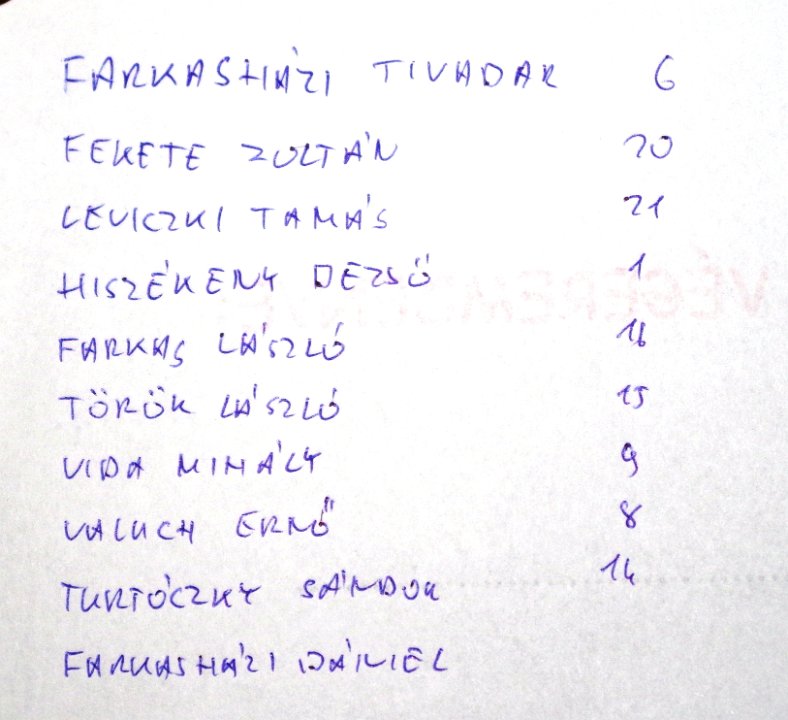 FARKASHÁZI TIVADAR 6
FEKETE ZOLTÁN 20
LEVICZKI TAMÁS 21
HISZÉKENY DEZSŐ 1
FARKAS LÁSZLÓ 16
TÖRÖK LÁSZLÓ 15
VIDA MIHÁLY 9
VALUCH ERNŐ 8
TURTÓCZKY SÁNDOR 14
FARKASHÁZI DÁNIEL